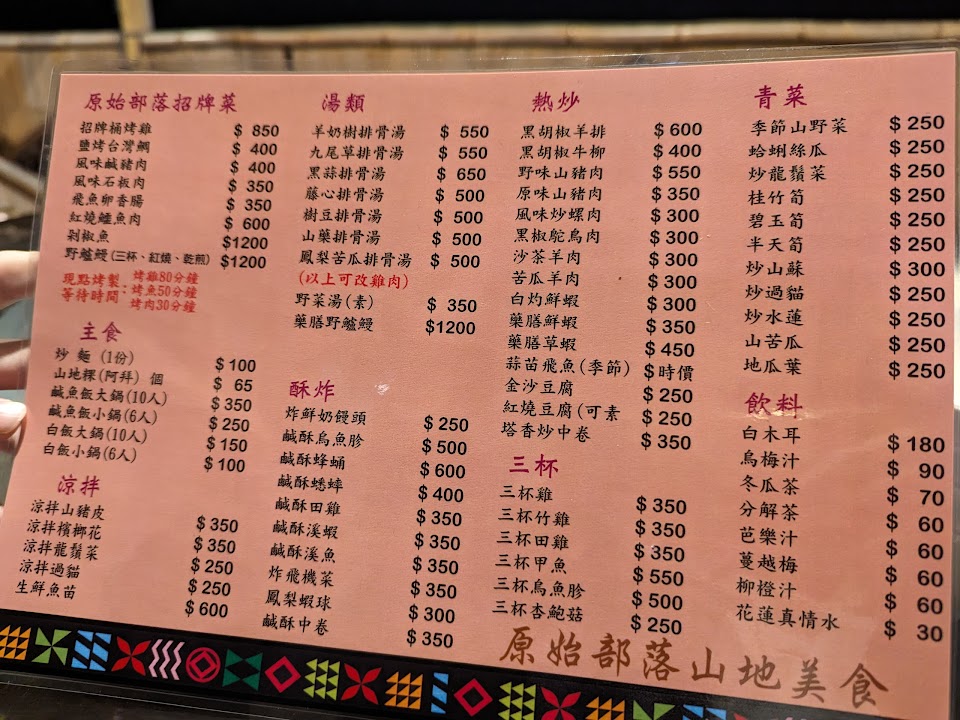 原始部落招牌菜
招牌桶烤雞 $ 850
鹽烤台灣鯛 $ 400
風味鹹豬肉 $ 400
風味石板肉 $ 350
飛魚卵香腸 $ 350
紅燒鱷魚肉 $ 600
剁椒魚 $1200
野鱸鰻(三杯、紅燒、乾煎) $1200
現點烤製 烤雞80分鐘
等待時間：烤魚50分鐘
烤肉30分鐘
主食
炒 麵 (1份) $ 100
山地粿(阿拜) 個 $ 65
鹹魚飯大鍋(10人) $ 350
鹹魚飯小鍋(6人) $ 250
白飯大鍋(10人) $ 150
白飯小鍋(6人) $ 100
涼拌
涼拌山豬皮 $ 350
涼拌檳榔花 $ 350
涼拌龍鬚菜 $ 250
涼拌過貓 $ 250
生鮮魚苗 $ 600
湯類
羊奶樹排骨湯 $ 550
九尾草排骨湯 $ 550
黑蒜排骨湯 $ 650
藤心排骨湯 $ 500
樹豆排骨湯 $ 500
山藥排骨湯 $ 500
鳳梨苦瓜排骨湯 $ 500
(以上可改雞肉)
野菜湯(素) $ 350
藥膳野鱸鰻 $1200
酥炸
炸鮮奶饅頭 $ 250
鹹酥烏魚胗 $ 500
鹹酥蜂蛹 $ 600
鹹酥蟋蟀 $ 400
鹹酥田雞 $ 350
鹹酥溪蝦 $ 350
鹹酥溪魚 $ 350
炸飛機菜 $ 350
鳳梨蝦球 $ 300
鹹酥中卷 $ 350
熱炒
黑胡椒羊排 $ 600
黑胡椒牛柳 $ 400
野味山豬肉 $ 550
原味山豬肉 $ 350
風味炒螺肉 $ 300
黑椒鴕鳥肉 $ 300
沙茶羊肉 $ 300
苦瓜羊肉 $ 300
白灼鮮蝦 $ 300
藥膳鮮蝦 $ 350
藥膳草蝦 $ 450
蒜苗飛魚(季節) $ 時價
金沙豆腐 $ 250
紅燒豆腐(可素 $ 250
塔香炒中卷 $ 350
三杯
三杯雞 $ 350
三杯竹雞 $ 350
三杯田雞 $ 350
三杯甲魚 $ 550
三杯烏魚胗 $ 500
三杯杏鮑菇 $ 250
青菜
季節山野菜 $ 250
蛤蜊絲瓜 $ 250
炒龍鬚菜 $ 250
桂竹筍 $ 250
碧玉筍 $ 250
半天筍 $ 250
炒山蘇 $ 300
炒過貓 $ 250
炒水蓮 $ 250
山苦瓜 $ 250
地瓜葉 $ 250
飲料
白木耳 $ 180
烏梅汁 $ 90
冬瓜茶 $ 70
分解茶 $ 60
芭樂汁 $ 60
蔓越梅 $ 60
柳橙汁 $ 60
花蓮真情水 $ 30
原始部落山地美食